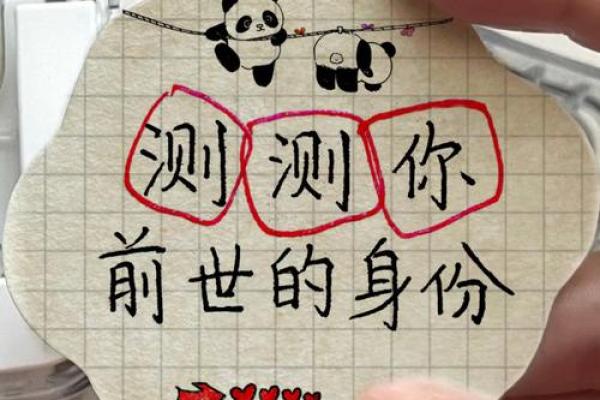 测测你
前世的身份